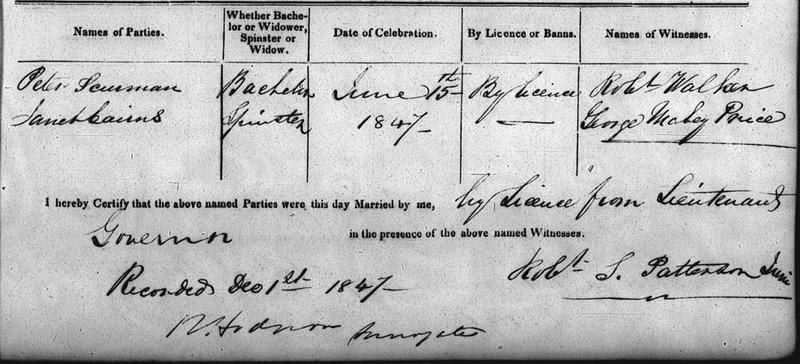 Names of Parties. Whether Bachelor or Widower, Spinster or Widow. Date of Celebration. By Licence or Banns. Names of Witnesses.
Peter Scurman Bachelor June 15th By Licence Robt. Walker
Janet Cairns Spinster 1847 — George Mabey Price
I hereby Certify that the above named Parties were this day Married by me, by Licence from Lieutenant
Governor in the presence of the above named Witnesses.
Robt. S. Patterson
Recorded Dec 1st 1847
Hodgson Surrogate